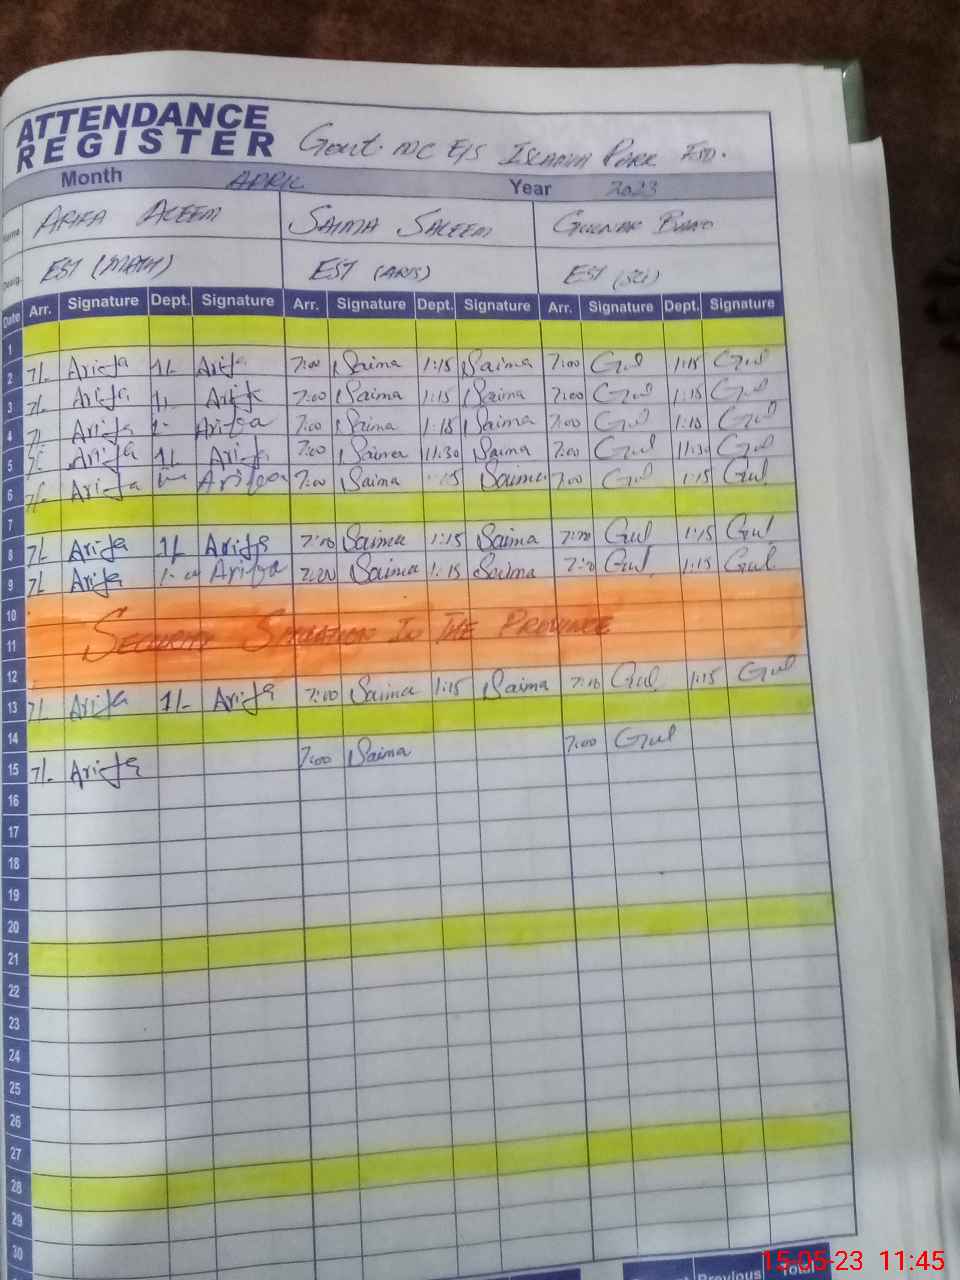 ATTENDANCE
REGISTER Govt. MC E/S ISLAMIA PARK FSD.
Month APRIL Year 2023
Name ARIFA ALEEM SAIMA SALEEM GULNAR BANO
Desig. EST (MATH) EST (ARTS) EST (SCI)
Date Arr. Signature Dept. Signature Arr. Signature Dept. Signature Arr. Signature Dept. Signature
1
2 7/- Arifa 1/- Arifa 7:00 Saima 1:15 Saima 7:00 Gul 1:15 Gul
3 7/- Arifa 1/- Arifa 7:00 Saima 1:15 Saima 7:00 Gul 1:15 Gul
4 7/- Arifa 1- Arifa 7:00 Saima 1:15 Saima 7:00 Gul 1:15 Gul
5 7/- Arifa 1/- Arifa 7:00 Saima 11:30 Saima 7:00 Gul 11:30 Gul
6 7/- Arifa Arifa 7:00 Saima 1:15 Saima 7:00 Gul 1:15 Gul
7
8 7/- Arifa 1/- Arifa 7:00 Saima 1:15 Saima 7:00 Gul 1:15 Gul
9 7/- Arifa 1:00 Arifa 7:00 Saima 1:15 Saima 7:00 Gul 1:15 Gul
10
11 SECURITY SITUATION IN THE PROVINCE
12
13 7/- Arifa 1/- Arifa 7:00 Saima 1:15 Saima 7:00 Gul 1:15 Gul
14
15 7/- Arifa 7:00 Saima 7:00 Gul
16
17
18
19
20
21
22
23
24
25
26
27
28
29
30
Previous Total
15-05-23 11:45